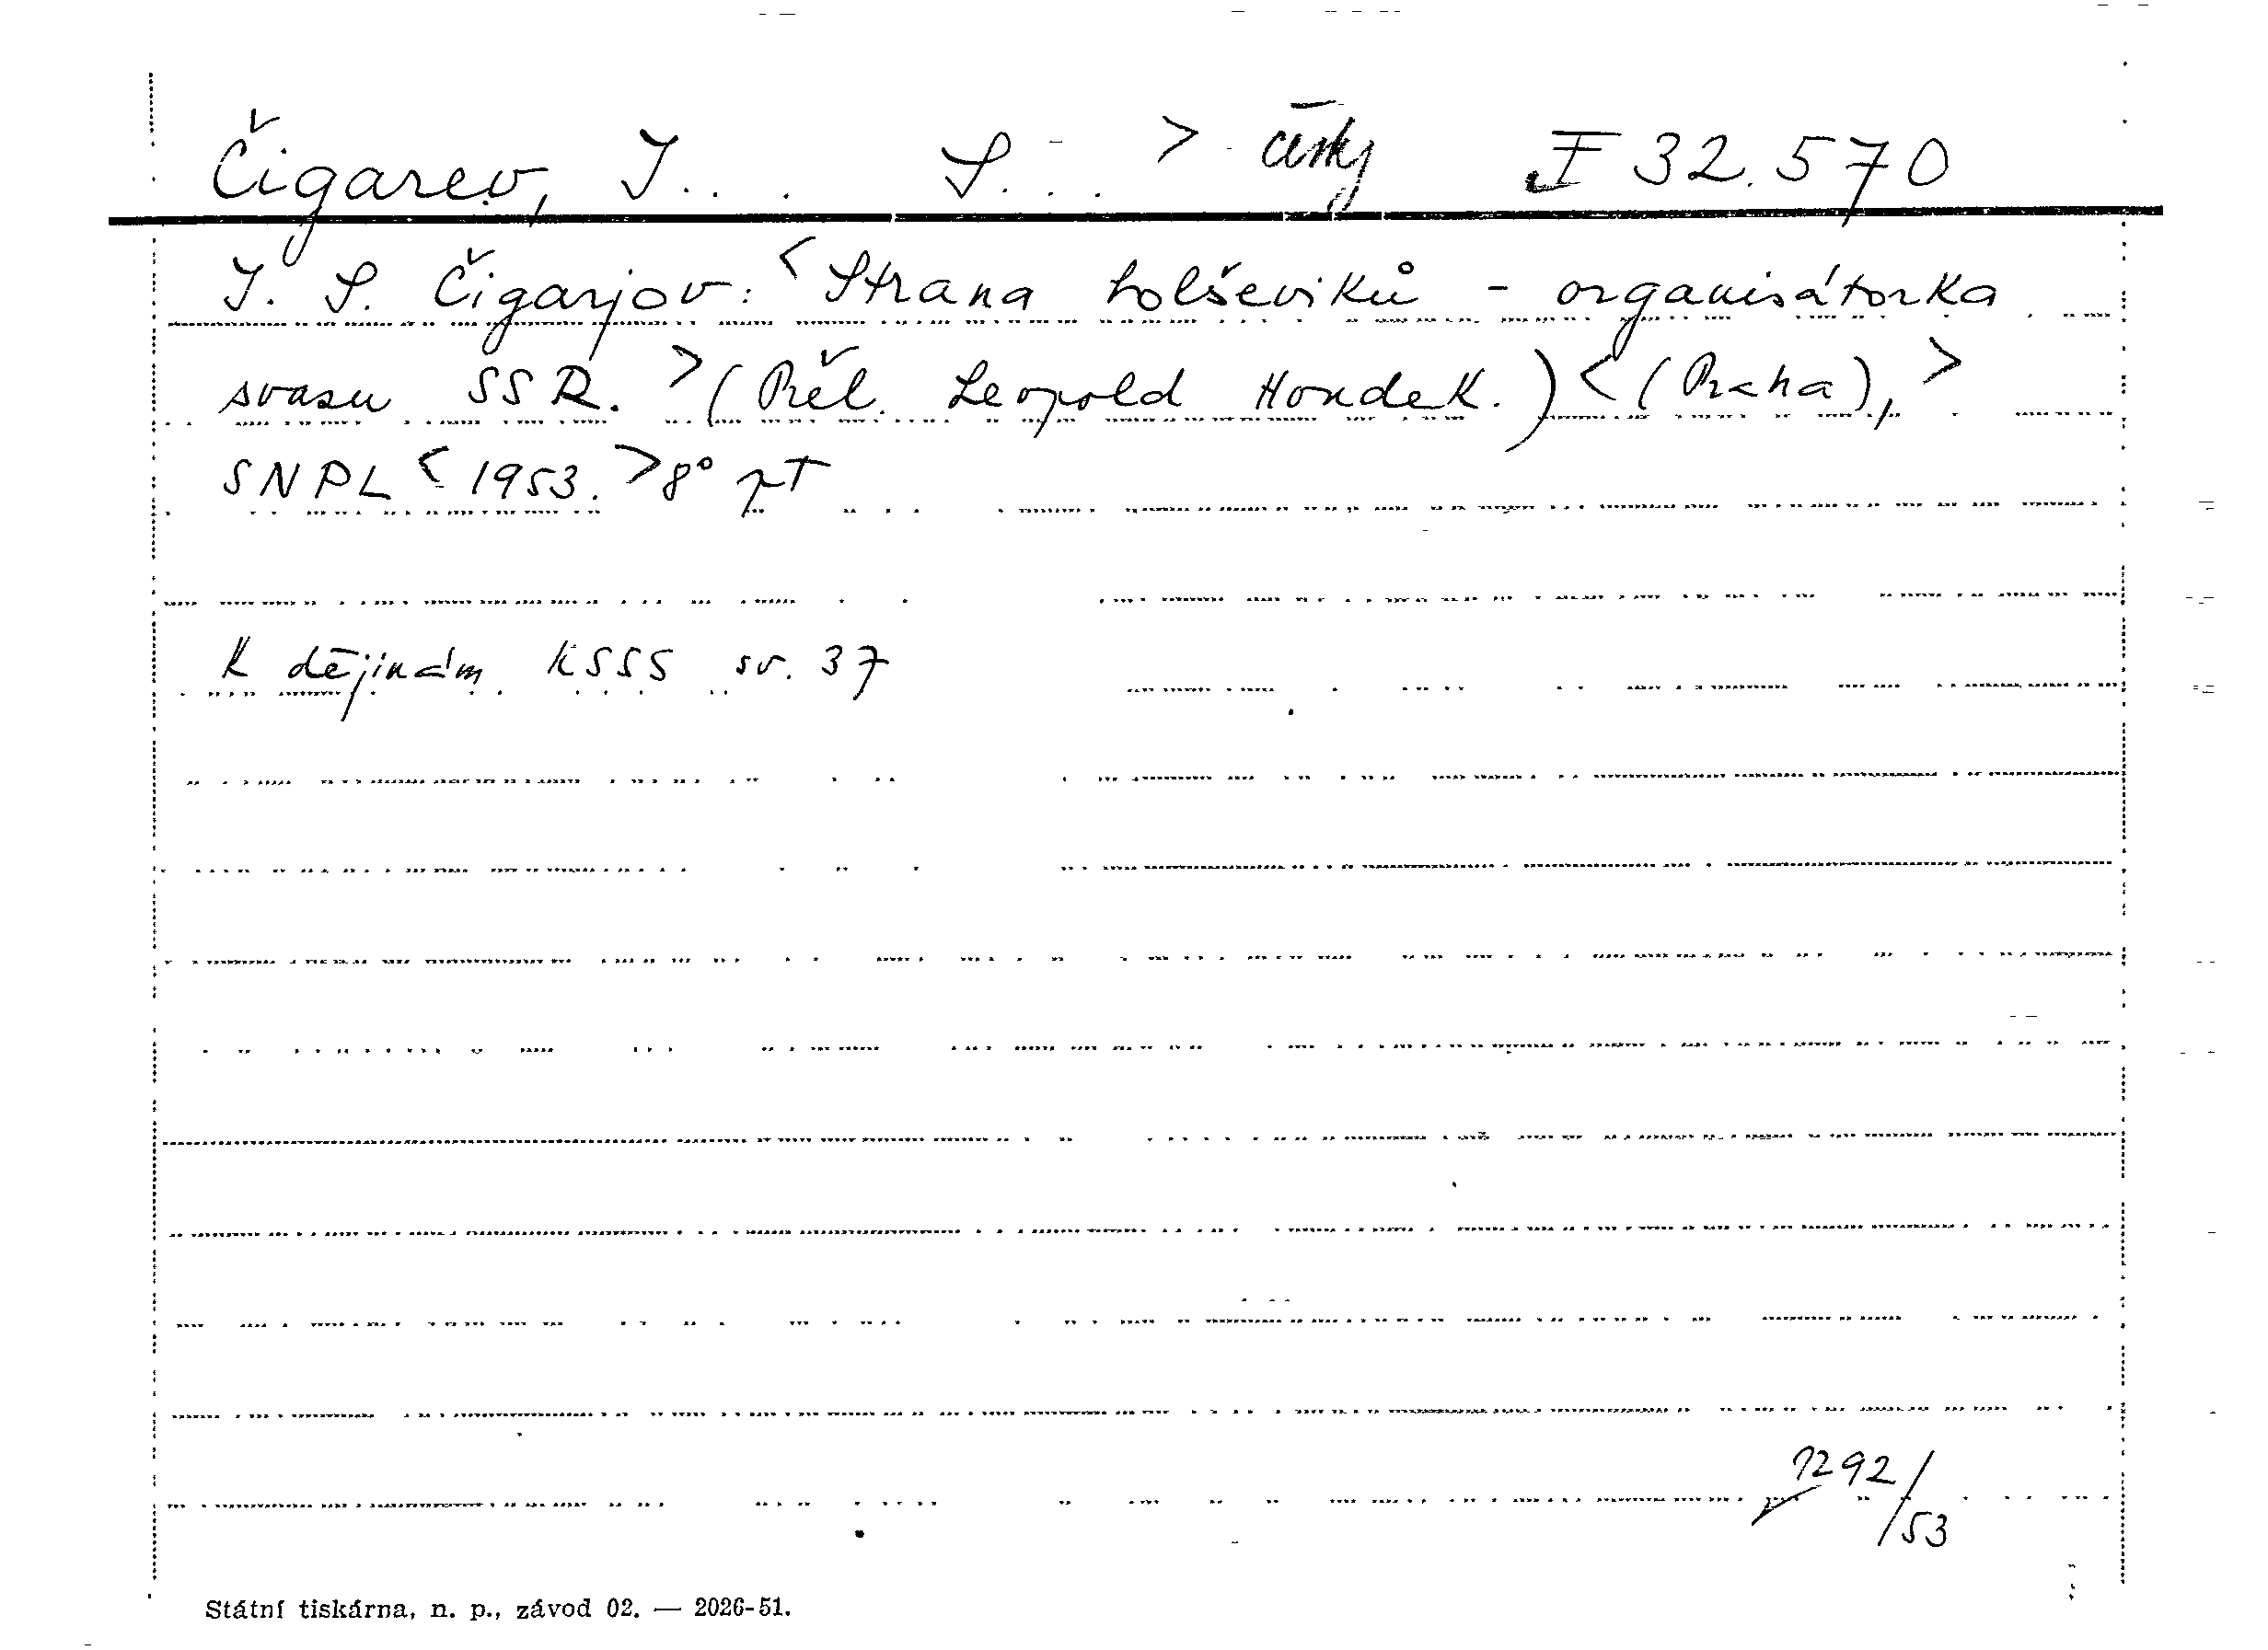 Čigarev, I... S... > česky I 32.570
I. S. Čigarjov: <Strana bolševiků - organisátorka
svazu SSR.> (Přel. Leopold Hondek.) <(Praha),>
SNPL <1953.> 8° pT
K dějinám KSSS sv. 37
1292/53
Státní tiskárna, n. p., závod 02. — 2026-51.